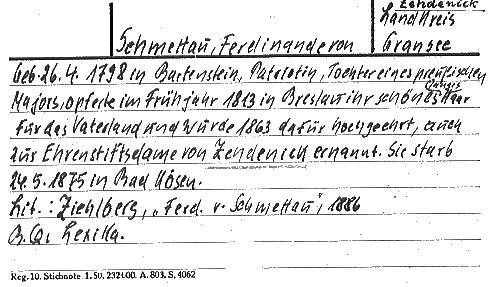 Zehdenick
Landkreis
Schmettau, Ferdinande von
Gransee
Geb. 26.4. 1798 in Bartenstein, Patriotin, Tochter eines preußischen
Majors, opferte im Frühjahr 1813 in Breslau ihr schönes langes Haar
für das Vaterland und wurde 1863 dafür hochgeehrt, auch
zur Ehrenstiftsdame von Zehdenick ernannt. Sie starb
24.5.1875 in Bad Kösen.
Lit.: Ziehlberg, „Ferd. v. Schmettau", 1886
B.Qu. Lexika.
Reg. 10. Stichnote. 1. 50. 232100. A. 803. S. 4062